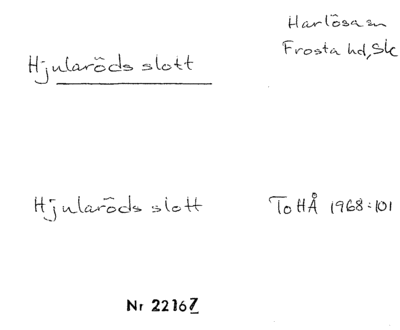 Harlösa sn
Frosta hd, Sk
Hjularöds slott
Hjularöds slott ToHÅ 1968:101
Nr 22167